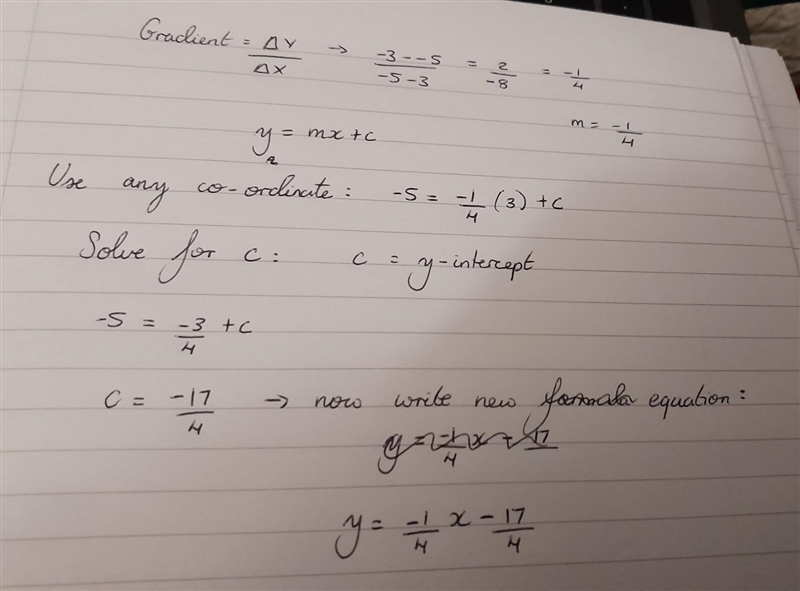 Gradient = ΔY/ΔX → -3--5/-5-3 = 2/-8 = -1/4
m = -1/4
y = mx + c
Use any co-ordinate: -5 = -1/4 (3) + c
Solve for c: c = y-intercept
-5 = -3/4 + c
c = -17/4 → now write new formula equation:
y = -1/4 x + 17
y = -1/4 x - 17/4